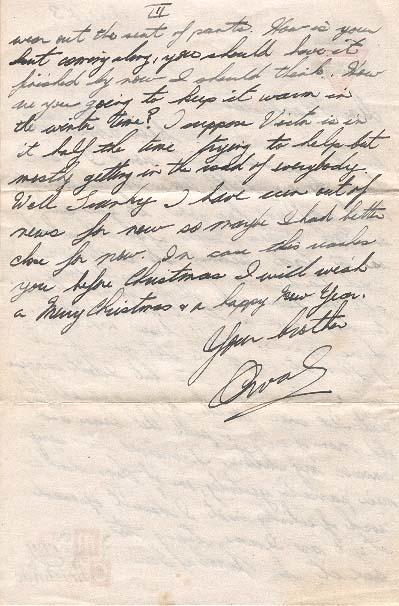 III
wear out the seat of pants. How is your
hut coming along, you should have it
finished by now I should think. How
are you going to keep it warm in
the winter time? I suppose is in
it half the time trying to help but
mostly getting in the road of everybody.
Well I have run out of
news for now so maybe I had better
close for now. In case this reaches
you before Christmas I will wish
a Merry Christmas & a happy New Year.
Your brother
Orval